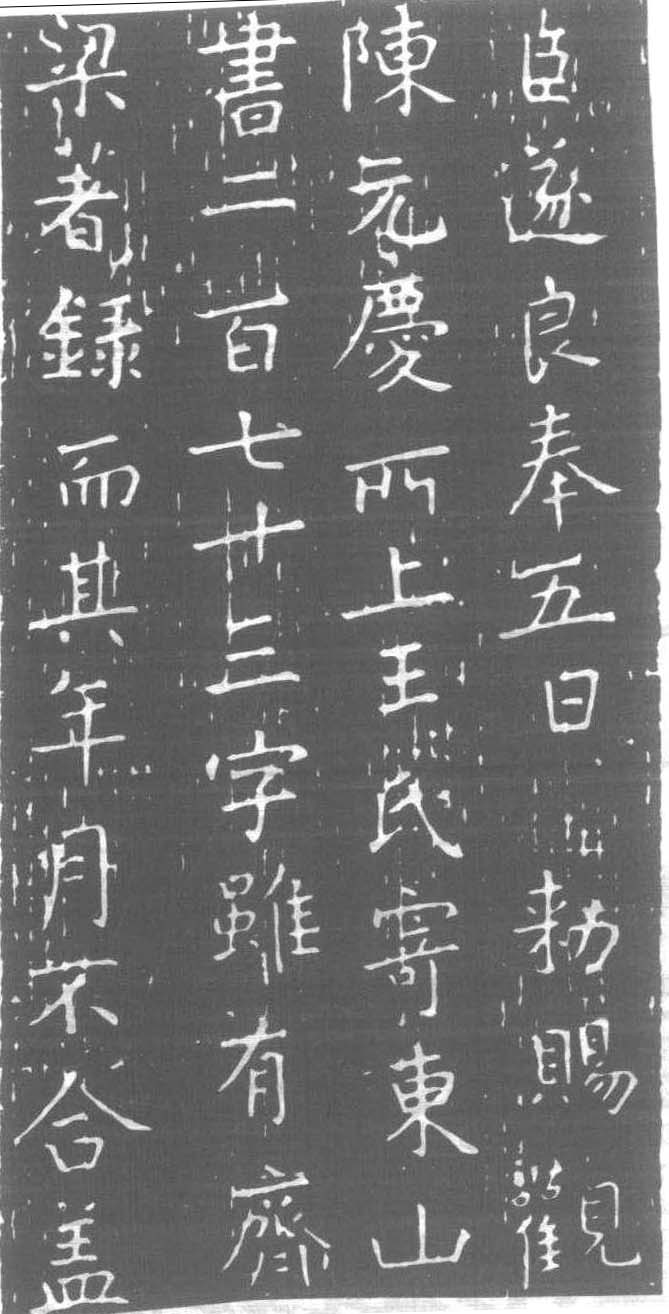 臣遂良奉五日勑賜觀
陳元慶所上王氏寄東山
書二百七十三字雖有齊
梁著錄而其年月不合盖